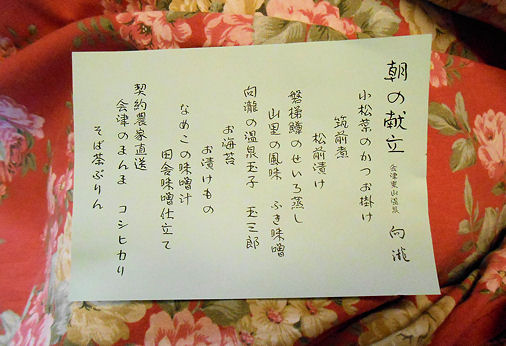 朝の献立 会津東山温泉 向瀧
小松菜のかつお掛け
筑前煮
松前漬け
磐梯鱒のせいろ蒸し
山里の風味 ふき味噌
向瀧の温泉玉子 玉三郎
お海苔
お漬けもの
なめこの味噌汁
田舎味噌仕立て
契約農家直送
会津のまんま コシヒカリ
そば茶ぷりん